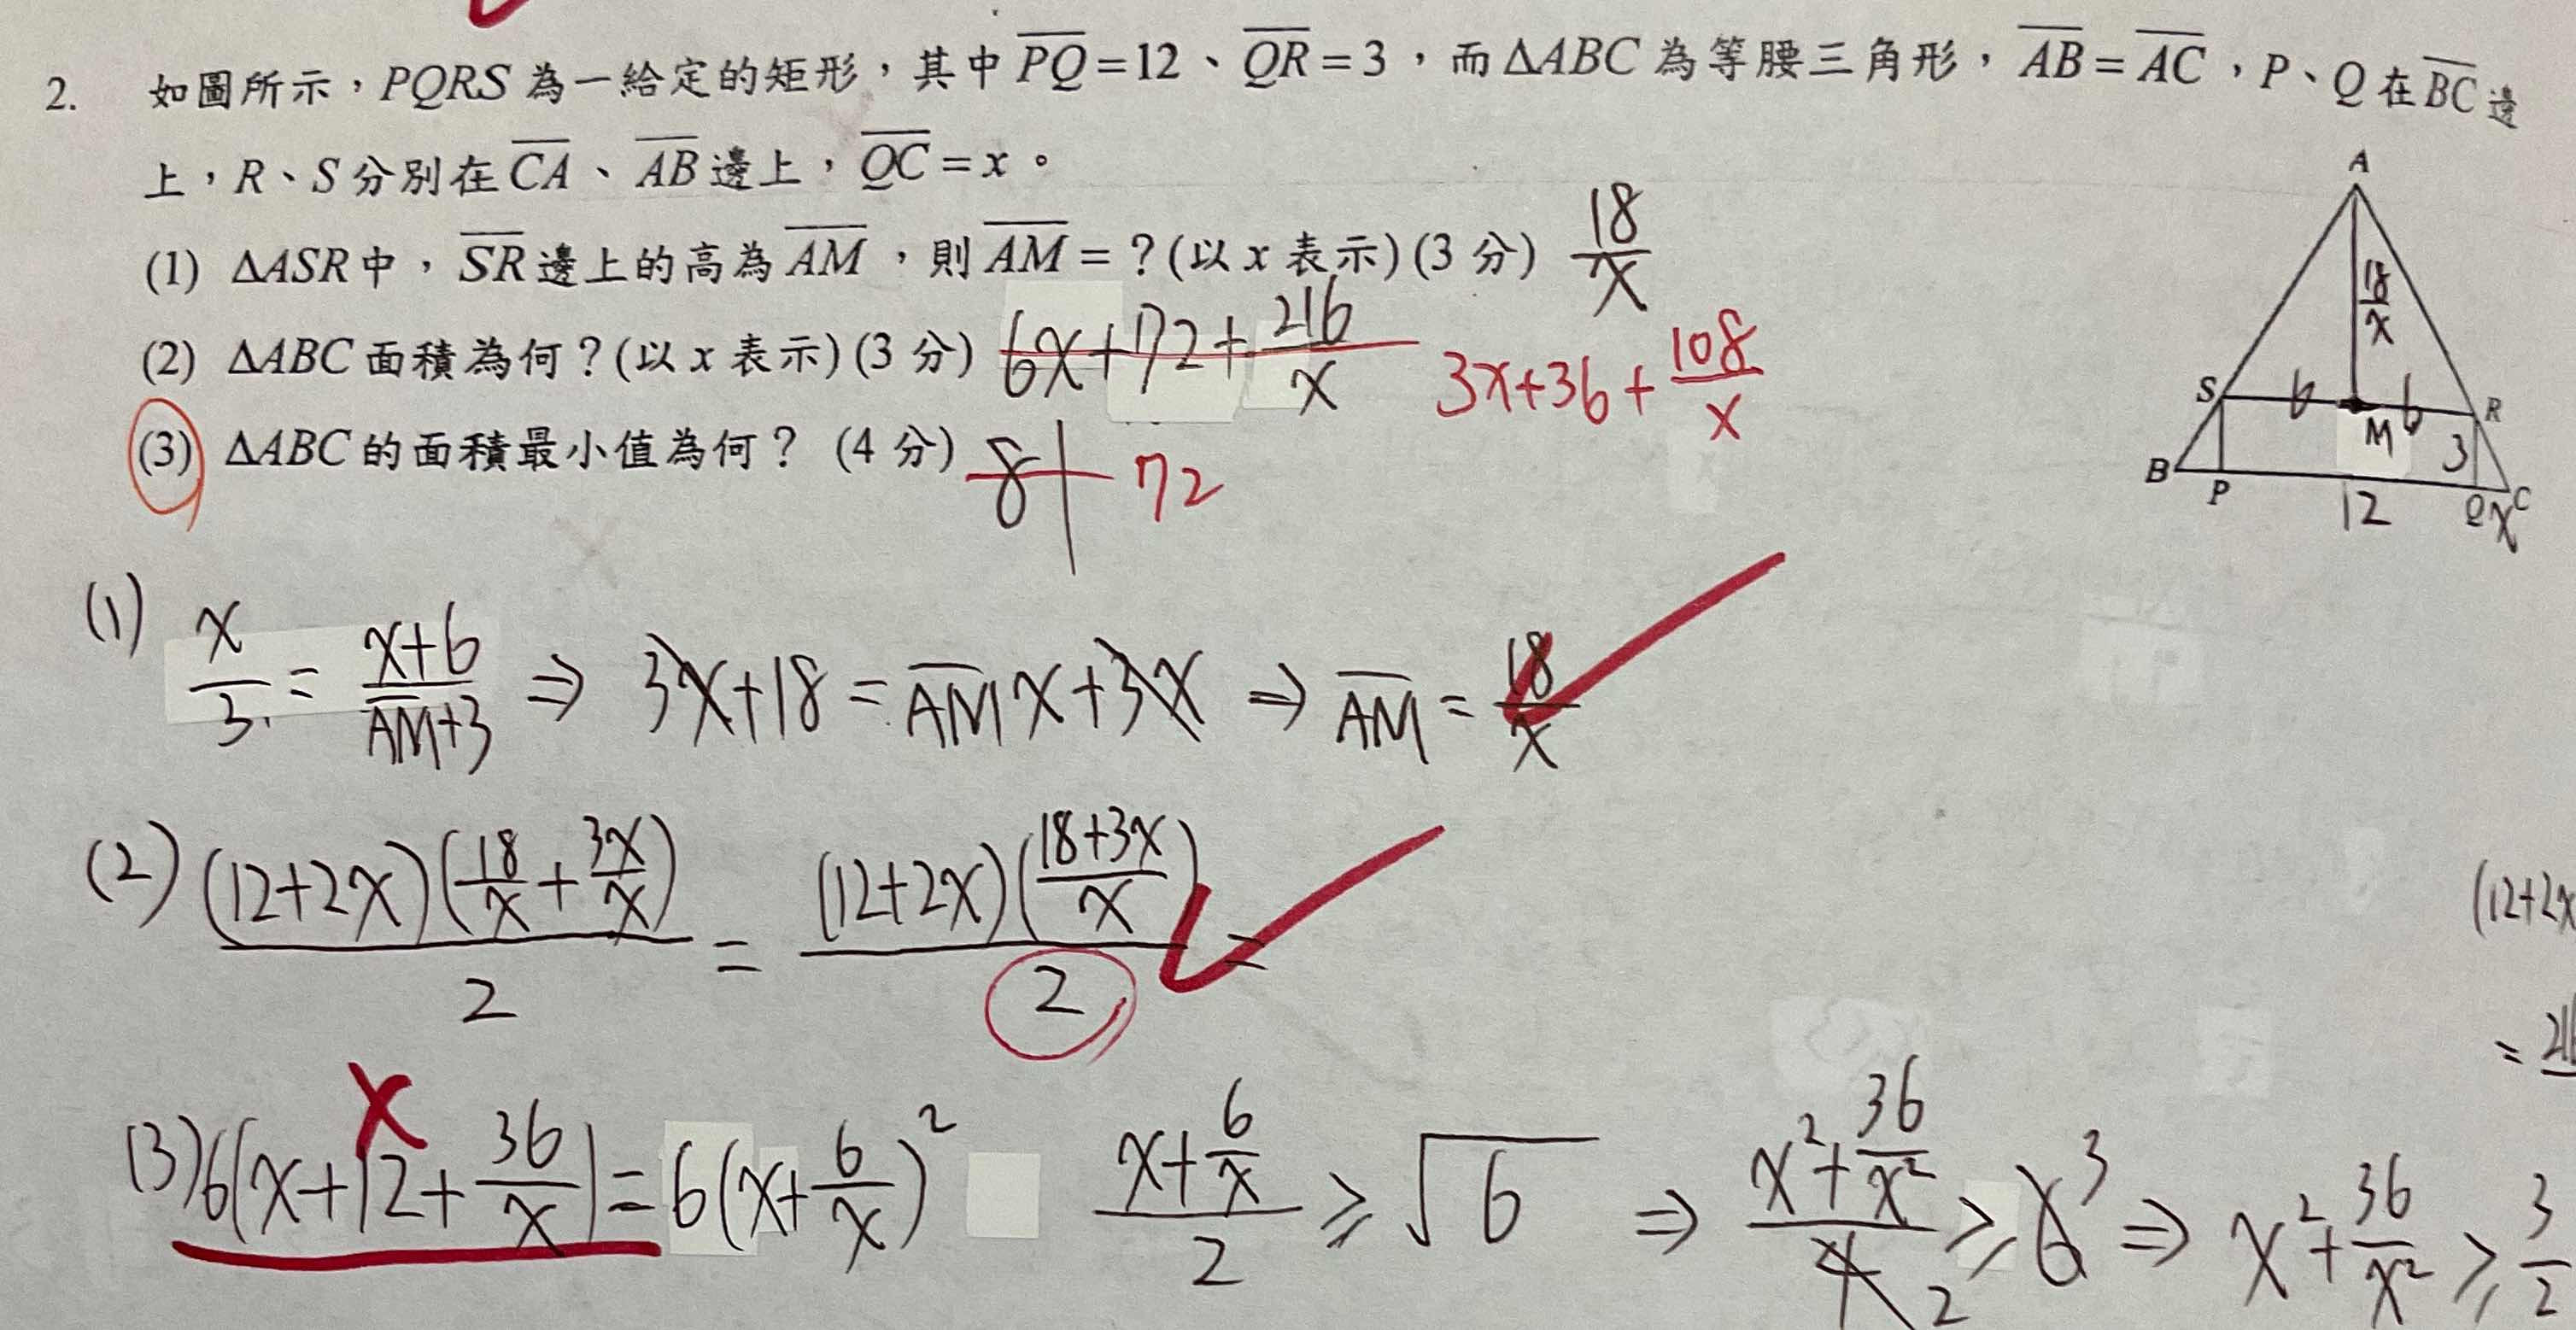 2. 如圖所示，PQRS 為一給定的矩形，其中 \overline{PQ}=12、\overline{QR}=3，而 ΔABC 為等腰三角形，\overline{AB}=\overline{AC}，P、Q 在 \overline{BC} 邊
上，R、S 分別在 \overline{CA}、\overline{AB} 邊上，\overline{QC}=x。
(1) ΔASR 中，\overline{SR} 邊上的高為 \overline{AM}，則 \overline{AM}=？(以 x 表示)(3 分) 18/x
(2) ΔABC 面積為何？(以 x 表示)(3 分) 6x+72+216/x 3x+36+108/x
(3) ΔABC 的面積最小值為何？ (4 分) 8 72
A
18/x
S 6 M 6 R
3
B P 12 Q x C
(1) x/3 = (x+6)/(\overline{AM}+3) ⇒ 3x+18 = \overline{AM}x+3x ⇒ \overline{AM} = 18/x
(2) (12+2x)(18/x+3x/x)/2 = (12+2x)((18+3x)/x)/2 =
(12+2x
(3) 6(x+12+36/x) = 6(x+6/x)² (x+6/x)/2 ≥ √6 ⇒ (x²+36/x²)/4 2 ≥ 6 3 ⇒ x²+36/x² ≥ 3/2